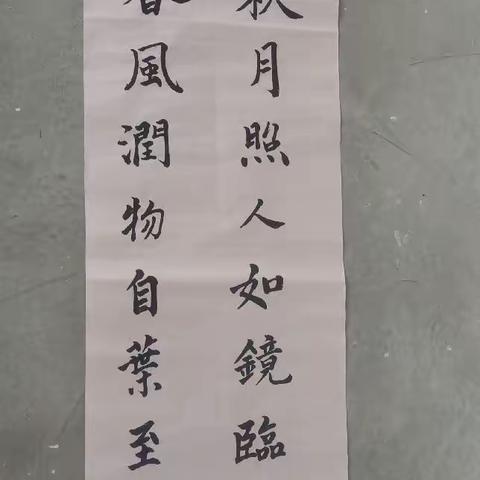 秋月照人如鏡臨
春風潤物自葉至